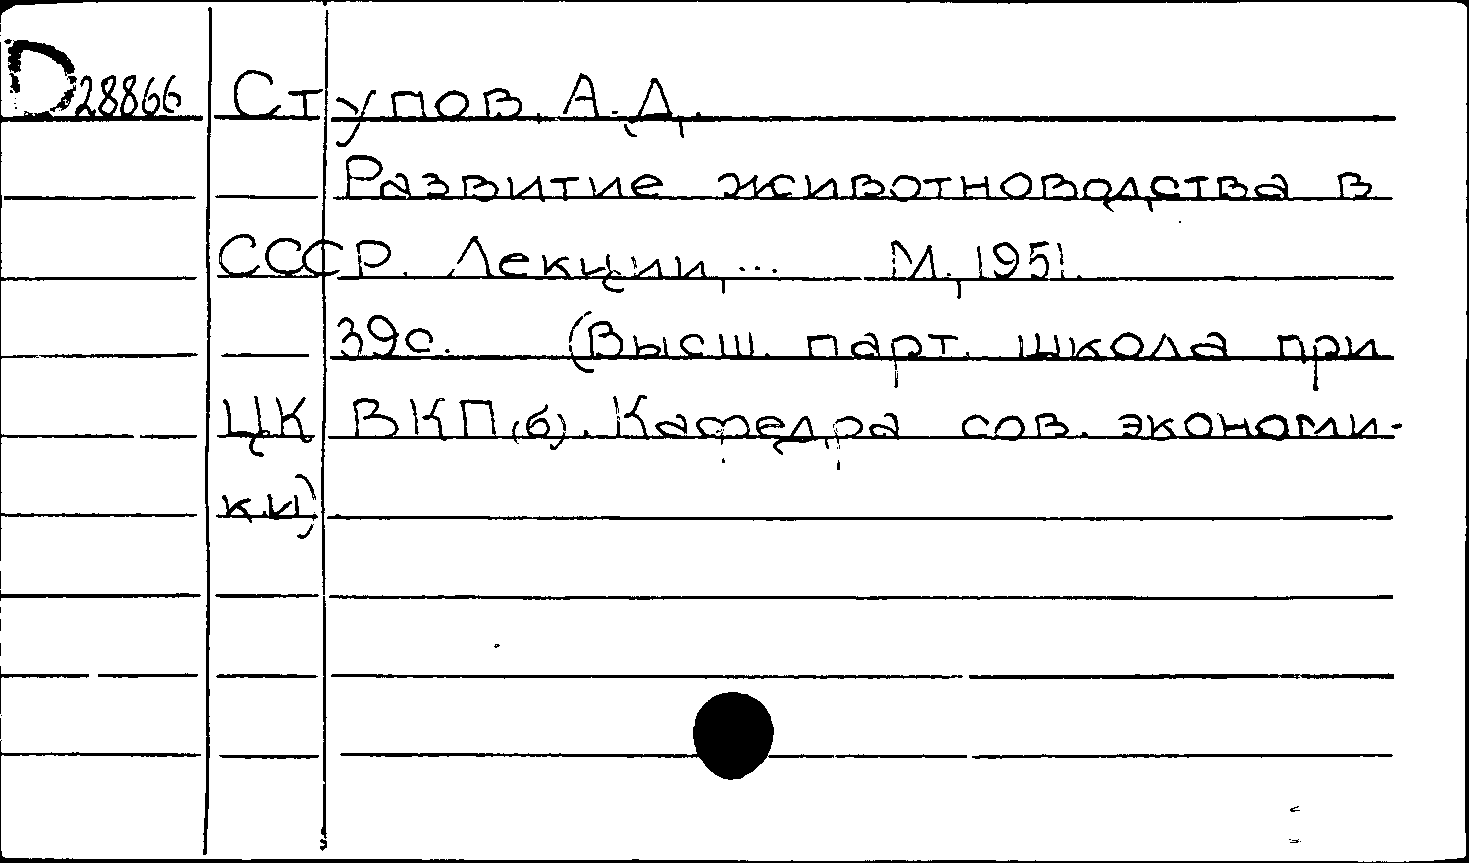 D 28866 Ступов, А.Д.
Развитие животноводства в
СССР. Лекции, ... М., 1951.
39с. (Высш. парт. школа при
ЦК ВКП(б). Кафедра сов. экономи-
ки).